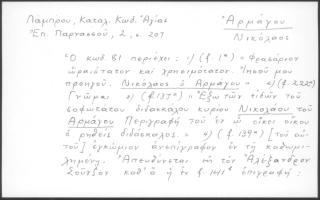 Λαμπρου, Καταλ. Κωδ. Ἁγίας
Ἐπ. Παρνασσού, 2, σ. 207
Ἀρμάγου
Νικόλαος
Ὁ κωδ. 81 περιέχει: 1) (f. 1ᵃ) «Φρεάριον
ὡραιότατον καὶ χρησιμότατον. Ἰησοῦ μου
προηγοῦ. Νικόλαος ὁ Ἀρμάγου» 2) (f. 222ᵃ)
Γνῶμαι 3) (f. 137ᵃ) «Ἔξω τῶν τιθῶν τοῦ
σοφωτάτου διδασκάλου κυρίου Νικολάου τοῦ
Ἀρμάγου Περιγραφὴ τοῦ ἐν ᾧ οἰκεῖ οἴκου
ὁ ῥηθεὶς διδάσκαλος.» 4) (f. 139ᵃ) [τοῦ αὐ-
τοῦ] ἐγκώμιον ἀνεπίγραφον ἐν τῇ καθωμι-
λημένῃ. Ἀπευθύνεται πρὸς τὸν Ἀλέξανδρον
Σοῦτζον καθ' ἃ ἡ ἐν f. 141ᵇ ἐπιγραφή: